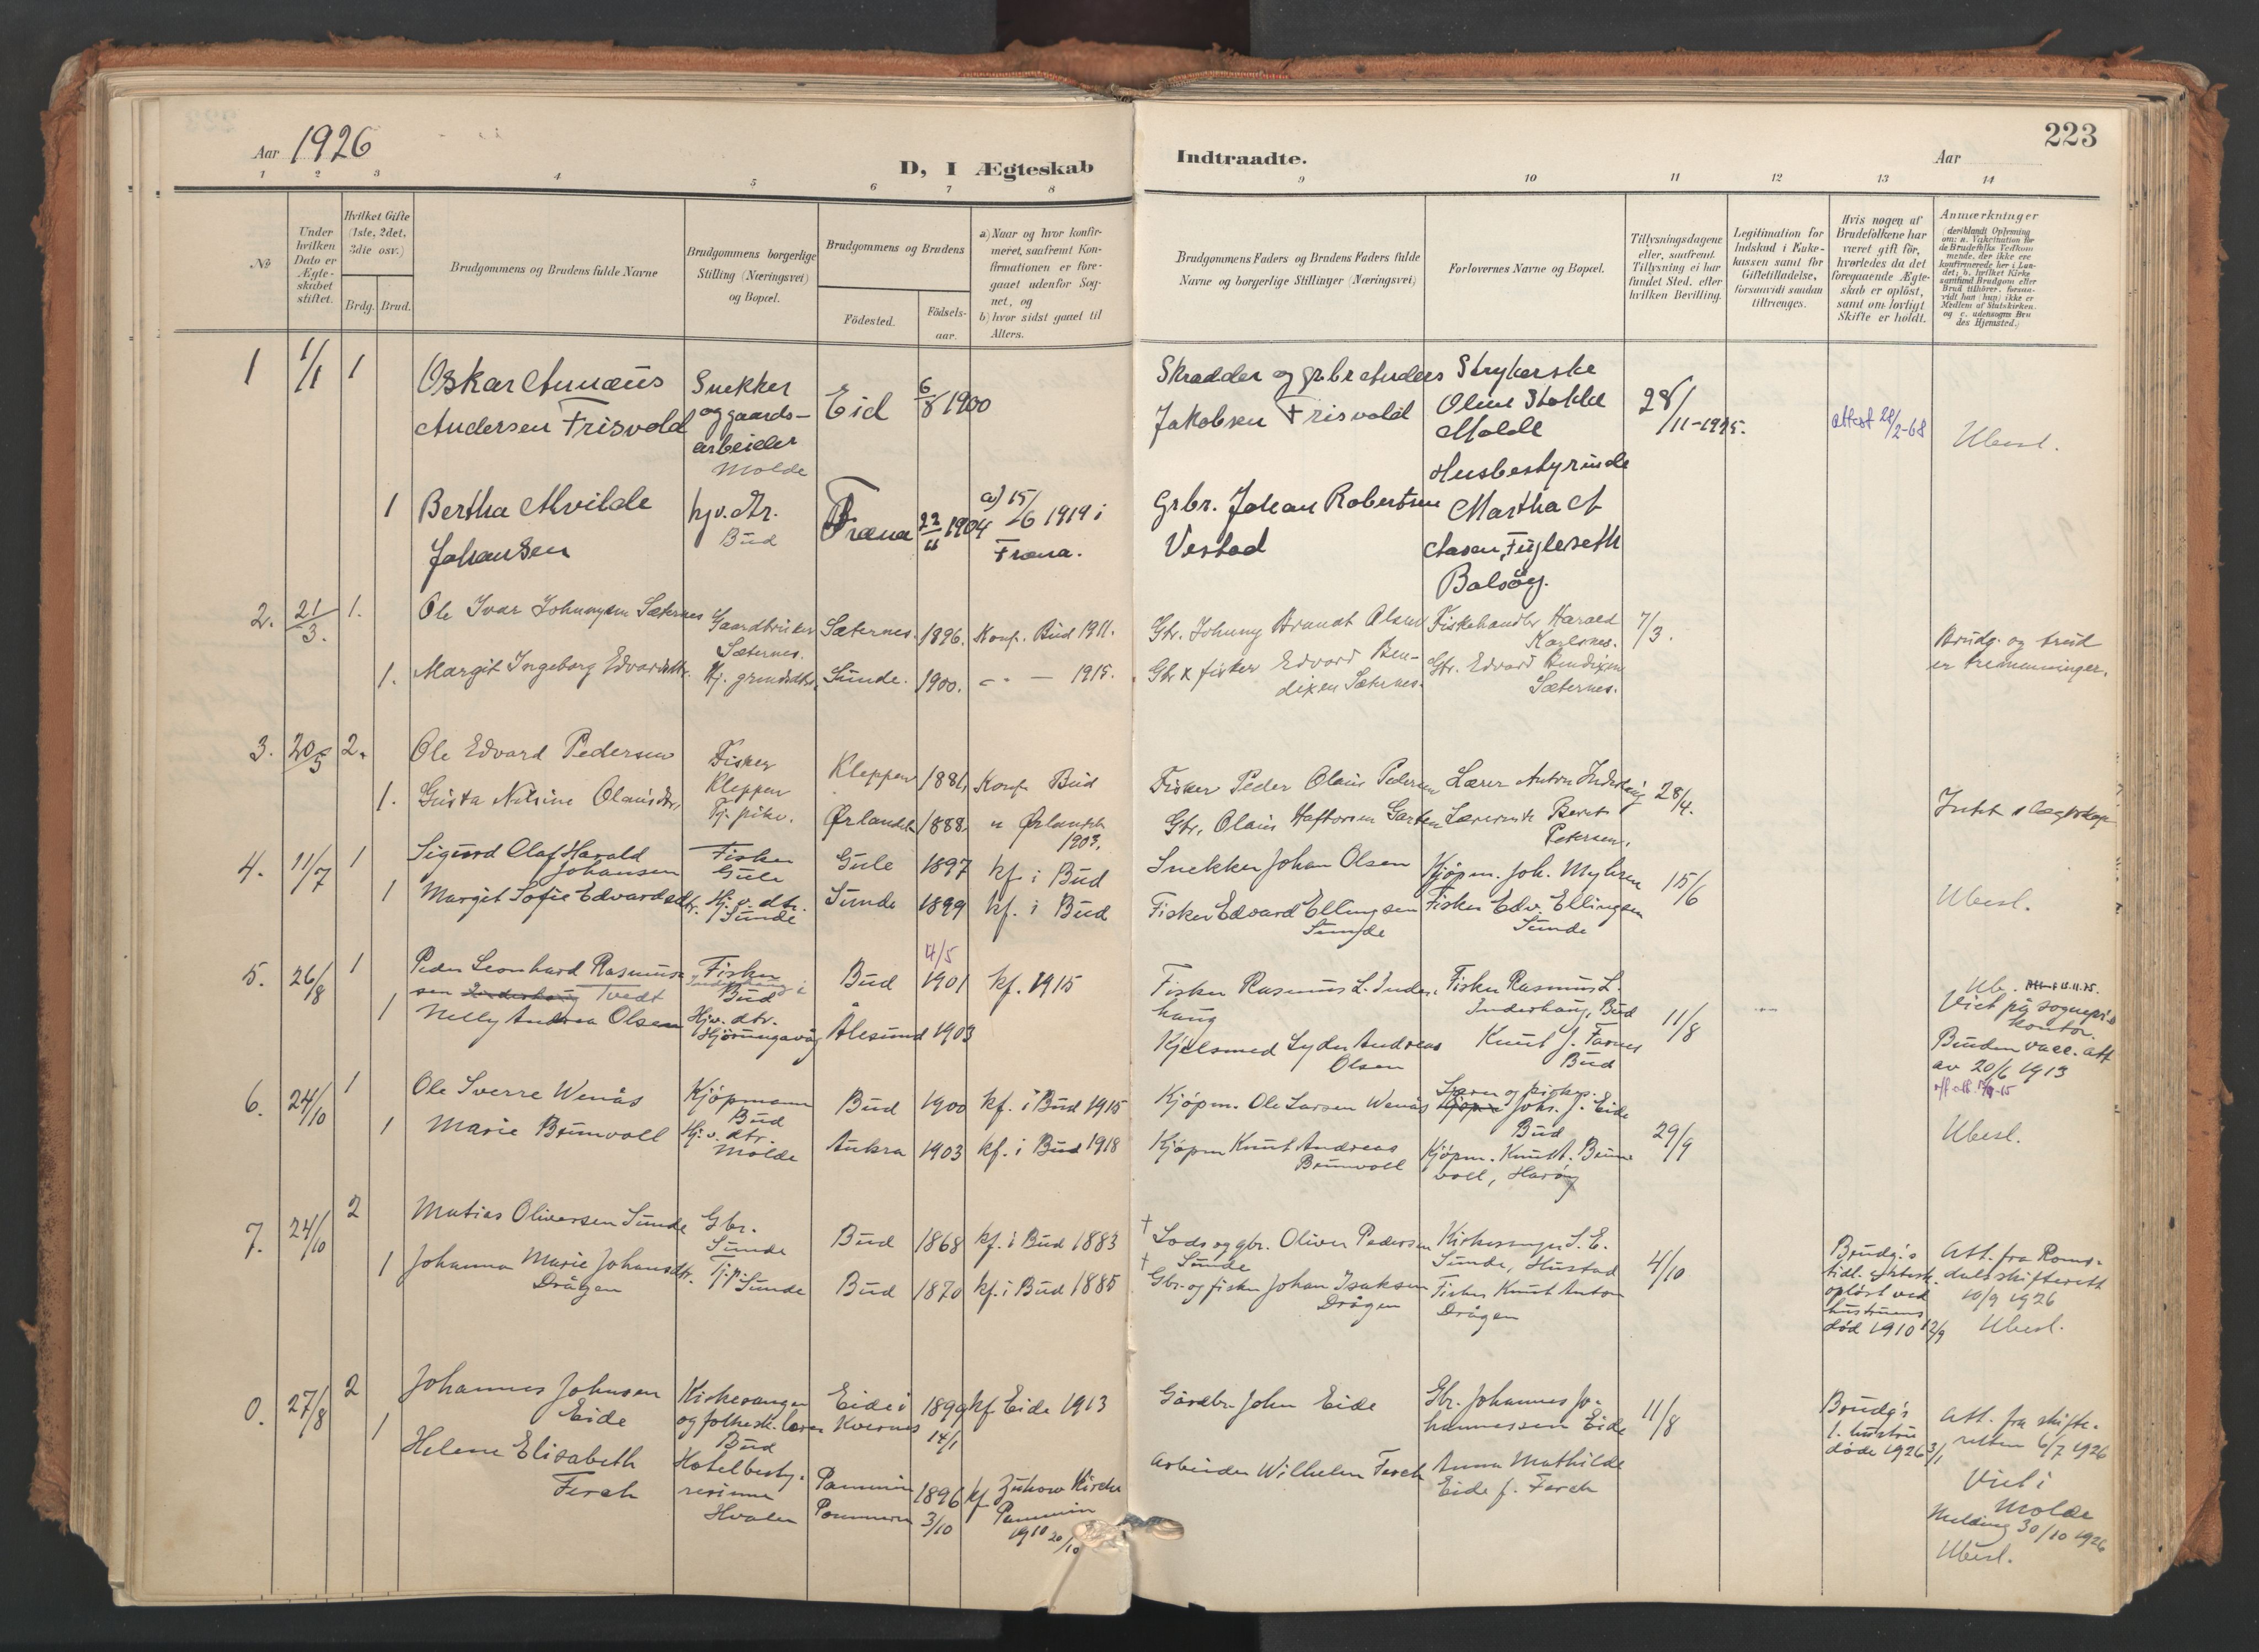 Aar 1926
D, I Ægteskab
Indtraadte.
Aar
223
1 2 3 4 5 6 7 8 9 10 11 12 13 14
No
Under hvilken Dato er Ægteskabet stiftet.
Hvilket Gifte (1ste, 2det, 3die osv.)
Brdg. Brud.
Brudgommens og Brudens fulde Navne
Brudgommens borgerlige Stilling (Næringsvei) og Bopæl.
Brudgommens og Brudens
Födested.
Födsels-aar.
a) Naar og hvor konfirmeret, saafremt Konfirmationen er foregaaet udenfor Sognet, og
b) hvor sidst gaaet til Alters.
Brudgommens Faders og Brudens Faders fulde Navne og borgerlige Stillinger (Næringsvei)
Forlovernes Navne og Bopæl.
Tillysningsdagene eller, saafremt Tillysning ei har fundet Sted, efter hvilken Bevilling.
Legitimation for Indskud i Enkekassen samt for Giftetilladelse, forsaavidt saadan tiltrænges.
Hvis nogen af Brudefolkene har været gift för, hvorledes da det foregaaende Ægteskab er oplöst, samt om lovligt Skifte er holdt.
Anmærkninger (deriblandt Oplysning om: a. Vakcination for de Brudefolks Vedkommende, der ikke ere konfirmerede her i Landet; b. hvilket Kirkesamfund Brudgom eller Brud tilhörer, forsaavidt han (hun) ikke er Medlem af Statskirken, og c. udensogns Brudes Hjemsted.)
1 1/1 1
Oskar Annæus
Andersen Frisvold
Snekker
og gaards-
arbeider
Molde
Eid 6/8 1900
Skrædder og grbr Anders
Jakobsen Frisvold
Strykerske
Oline Stokke
Molde
28/11-1925.
Attest 28/2-68
Ubesl.
1 Bertha Alvilde
Johansen
hjv. dtr.
Bud
Fræna 22/11 1904
a) 15/6 1919 i
Fræna.
Grbr. Johan Robertsen
Vestad
Husbestyrinde
Martha A
Aasen, Fugleseth
Bolsöy.
2. 21/3. 1. Ole Ivar Johnnysen Sæternes
Gaardbruker
Sæternes.
Sæternes. 1896. Konf. Bud 1911.
Gbr. Johnny Brandt Olsen
Fiskehandler Harald
Karlsnes.
7/3.
Brudg. og brud
er tremenninger.
1. Margit Ingeborg Edvardsdtr.
Sunde. 1900. - " - 1915.
Gbr & fisker Edvard Ben-
dixen Sæternes.
Gbr. Edvard Bendixen
Sæternes.
3. 20/5 2. Ole Edvard Pedersen
Fisker
Kleppen
Kleppen 1881, Konf. Bud
Fisker Peder Olaus Pedersen
28/4.
1. Gusta Nilsine Olausdtr.
Tj. pike.
Ørlandet 1888, " Ørlandet
1903.
Gbr. Olaus Haftorsen Garten
Lærerinde Beret
Petersen.
4. 11/7 1 Sigurd Olaf Harald
Johansen
Fisker
Gule
Gule 1897 kf. i Bud
Snekker Johan Olsen
Kjöpm. Joh. Myhren
15/6
Ubesl.
1 Margit Sofie Edvardsdtr.
Hj. v. dtr.
Sunde
Sunde 1899 kf. i Bud
Fisker Edvard Ellingsen
Sunde
Fisker Edv. Ellingsen
Sunde
5. 26/8 1 Peder Leonhard Rasmus-
sen Inderhaug Tvedt
Fisker
Inderhaug i
Bud
Bud 4/5 1901 kf. 1915
Fisker Rasmus L. Inder-
haug
Fisker Rasmus L.
Inderhaug, Bud
11/8
Ub.
Viet på sogneprs
kontor.
1 Nelly Andrea Olsen
Hjv. dtr.
Hjörungavåg
Ålesund 1903
Kjelsmed Syder Andreas
Olsen
Knut J. Farnes
Bud
Bruden vacc. att
av 20/6 1913
6. 24/10 1 Ole Sverre Wenås
Kjöpmann
Bud
Bud 1900 kf. i Bud 1915
Kjöpm. Ole Larsen Wenås
Lærer og kirkes.
Johs. J. Eide
Bud
29/9
Ubesl.
1 Marie Brunvoll
Hj. v. dtr.
Molde
Aukra 1903 kf. i Bud 1918
Kjöpm Knut Andreas
Brunvoll
Kjöpm. Knut A. Brun-
voll, Haröy
7. 24/10 2 Matias Oliversen Sunde
Gbr.
Sunde
Bud 1868 kf. i Bud 1883
† Lods og gbr. Oliver Pedersen
Sunde
Kirkesanger S. E.
Sunde, Hustad
4/10
Brudg.'s
tidl. ektesk.
oplöst ved
hustruens
död 1910 12/9
Att. fra Roms-
dal skifterett
10/9 1926
Ubesl.
1 Johanna Marie Johansdtr.
Drågen
Tj. p. Sunde
Bud 1870 kf. i Bud 1885
† Gbr. og fisker Johan Isaksen
Drågen
Fisker Knut Anton
Drågen
27/8 2 Johannes Johnsen
Eide
Kirkesanger
og folkesk. lærer
Bud
Eide i
Kvernes
1899 14/1
kf Eide 1913
Gårdbr. John Eide
Gbr. Johannes Jo-
hannessen Eide
11/8
Brudg's
1. hustru
döde 1926 3/1
Att. fra skifte-
retten 6/7 1926
1 Helene Elisabeth
Ferch
Hotelbesty-
rerinne
Hvalen
Pammin
Pommern
1896 3/10
kf Zuhow Kirche
Pammin
1910 20/10
Arbeider Wilhelm Ferch
Anna Mathilde
Eide f. Ferch
Viet i
Molde
Melding 30/10 1926
Ubesl.